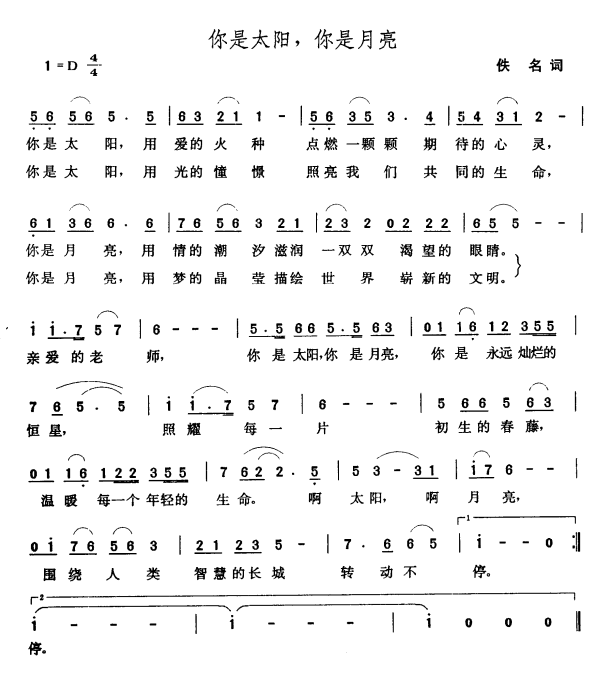 你是太阳，你是月亮
1=D 4/4 佚 名 词
5 6 5 6 5 · 5 | 6 3 2 1 1 - | 5 6 3 5 3 · 4 | 5 4 3 1 1 - |
你是 太 阳， 用 爱的 火 种 点燃 一颗 颗 期 待的 心 灵，
你是 太 阳， 用 光的 憧 憬 照亮 我 们 共 同的 生 命，
6 1 3 6 6 · 6 | 7 6 5 6 3 2 1 | 2 3 2 0 2 2 2 | 6 5 5 - - |
你是 月 亮， 用 情的 潮 汐 滋润 一双 双 渴 望的 眼睛。
你是 月 亮， 用 梦的 晶 莹 描绘 世 界 崭 新的 文明。
i i · 7 5 7 | 6 - - - | 5 · 5 6 6 5 · 5 6 3 | 0 1 1 6 1 2 3 5 5 |
亲 爱 的 老 师， 你 是 太阳，你 是 月亮， 你 是 永远 灿烂的
7 6 5 · 5 | i i · 7 5 7 | 6 - - - | 5 6 6 5 6 3 |
恒 星， 照 耀 每 一 片 初 生 的 春 藤，
0 1 1 6 1 2 2 3 5 5 | 7 6 2 2 · 5 | 5 3 - 3 1 | i 7 6 - - |
温 暖 每一个 年轻的 生 命。 啊 太 阳， 啊 月 亮，
0 i 7 6 5 6 3 | 2 1 2 3 5 - | 7 · 6 6 5 | 1 i - - 0 :||
围 绕 人 类 智 慧 的 长 城 转 动 不 停。
2 i - - - | i - - - | i 0 0 0 ||
停。